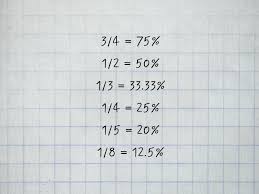 3/4 = 75%
1/2 = 50%
1/3 = 33.33%
1/4 = 25%
1/5 = 20%
1/8 = 12.5%